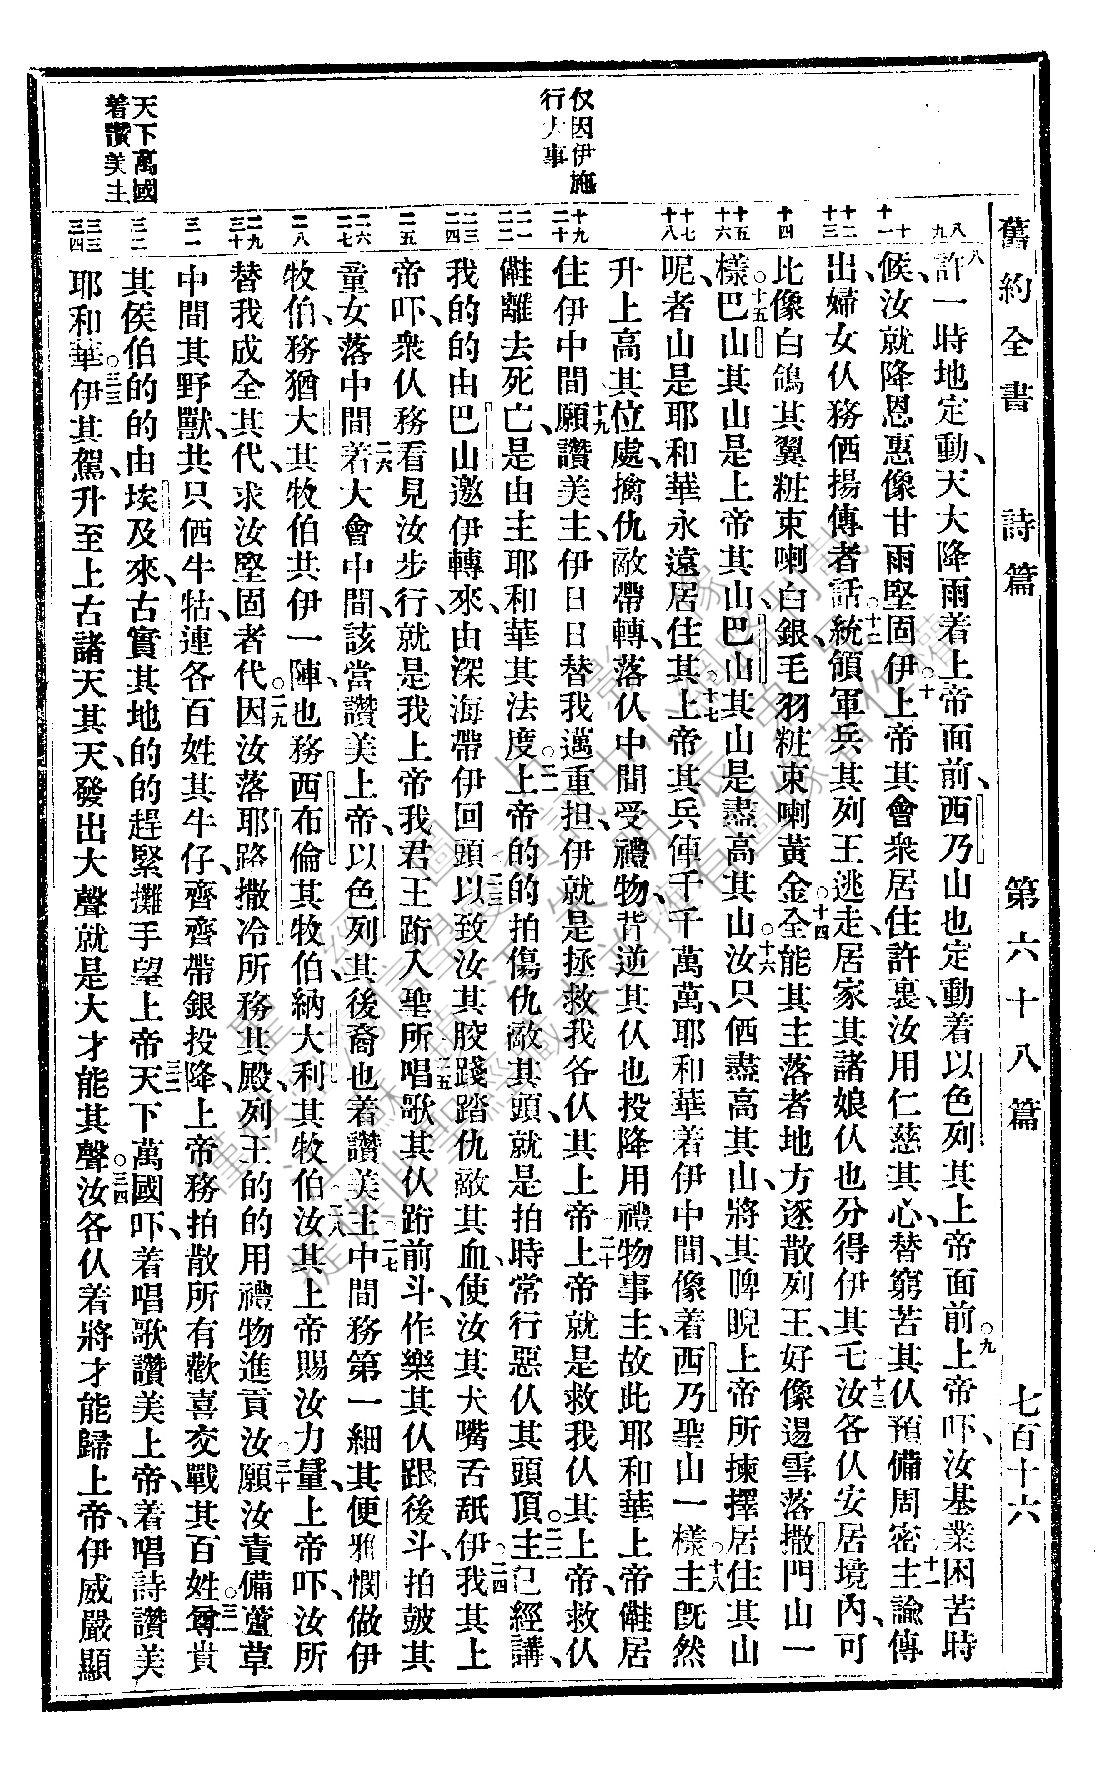 舊約全書 詩篇 第六十八篇 七百十六
許一時地定動、天大降雨着上帝面前、西乃山也定動、着以色列其上帝面前。九上帝吓、汝基業困苦時
候、汝就降恩惠像甘雨堅固伊。十上帝其會衆居住許裏、汝用仁慈其心、替窮苦其仈預備周密。十一主諭傳
出、婦女仈務俩揚傳者話。十二統領軍兵其列王逃走、居家其諸娘仈也分得伊其乇。十三汝各仈安居境內、可
比像白鴿其翼粧束喇白銀、毛羽粧束喇黃金。十四全能其主落者地方逐散列王、好像邊雪落撒門山一
樣。十五巴山其山是上帝其山、巴山其山是盡高其山。十六汝只俩盡高其山、將其睥睨上帝所揀擇居住其山
呢、者山是耶和華永遠居住其。十七上帝其兵俥千千萬萬、耶和華着伊中間、像着西乃聖山一樣。十八主旣然
升上高其位處、擒仇敵帶轉、落仈中間受禮物、背逆其仈也投降、用禮物事主、故此耶和華上帝儺居
住伊中間。十九願讚美主、伊日日替我邁重担、伊就是拯救我各仈其上帝。二十上帝就是救我仈其上帝、救仈
儺離去死亡、是由主耶和華其法度。二一上帝的的拍傷仇敵其頭、就是拍時常行惡仈其頭頂。二二主已經講、
我的的由巴山邀伊轉來、由深海帶伊回頭。二三以致汝其骹踐踏仇敵其血、使汝其犬嘴舌舐伊。二四我其上
帝吓、衆仈務看見汝步行、就是我上帝我君王跡入聖所。二五唱歌其仈跡前斗、作樂其仈跟後斗、拍皷其
童女落中間。二六着大會中間、該當讚美上帝、以色列其後裔也着讚美主。二七中間務第一細其便雅憫做伊
牧伯、務猶大其牧伯共伊一陣、也務西布倫其牧伯、納大利其牧伯。二八汝其上帝賜汝力量、上帝吓、汝所
替我成全其代、求汝堅固者代。二九因汝落耶路撒冷所務其殿、列王的的用禮物進貢汝。三十願汝責備蘆草
中間其野獸、共只俩牛牯、連各百姓其牛仔、齊齊帶銀投降、上帝務拍散所有歡喜交戰其百姓。三一尊貴
其侯伯的的由埃及來、古實其地的的趕緊攤手望上帝。三二天下萬國吓、着唱歌讚美上帝、着唱詩讚美
耶和華。三三伊其駕升至上古諸天其天、發出大聲、就是大才能其聲。三四汝各仈着將才能歸上帝、伊威嚴顯
仅因伊施
行大事
天下萬國
着讚美主